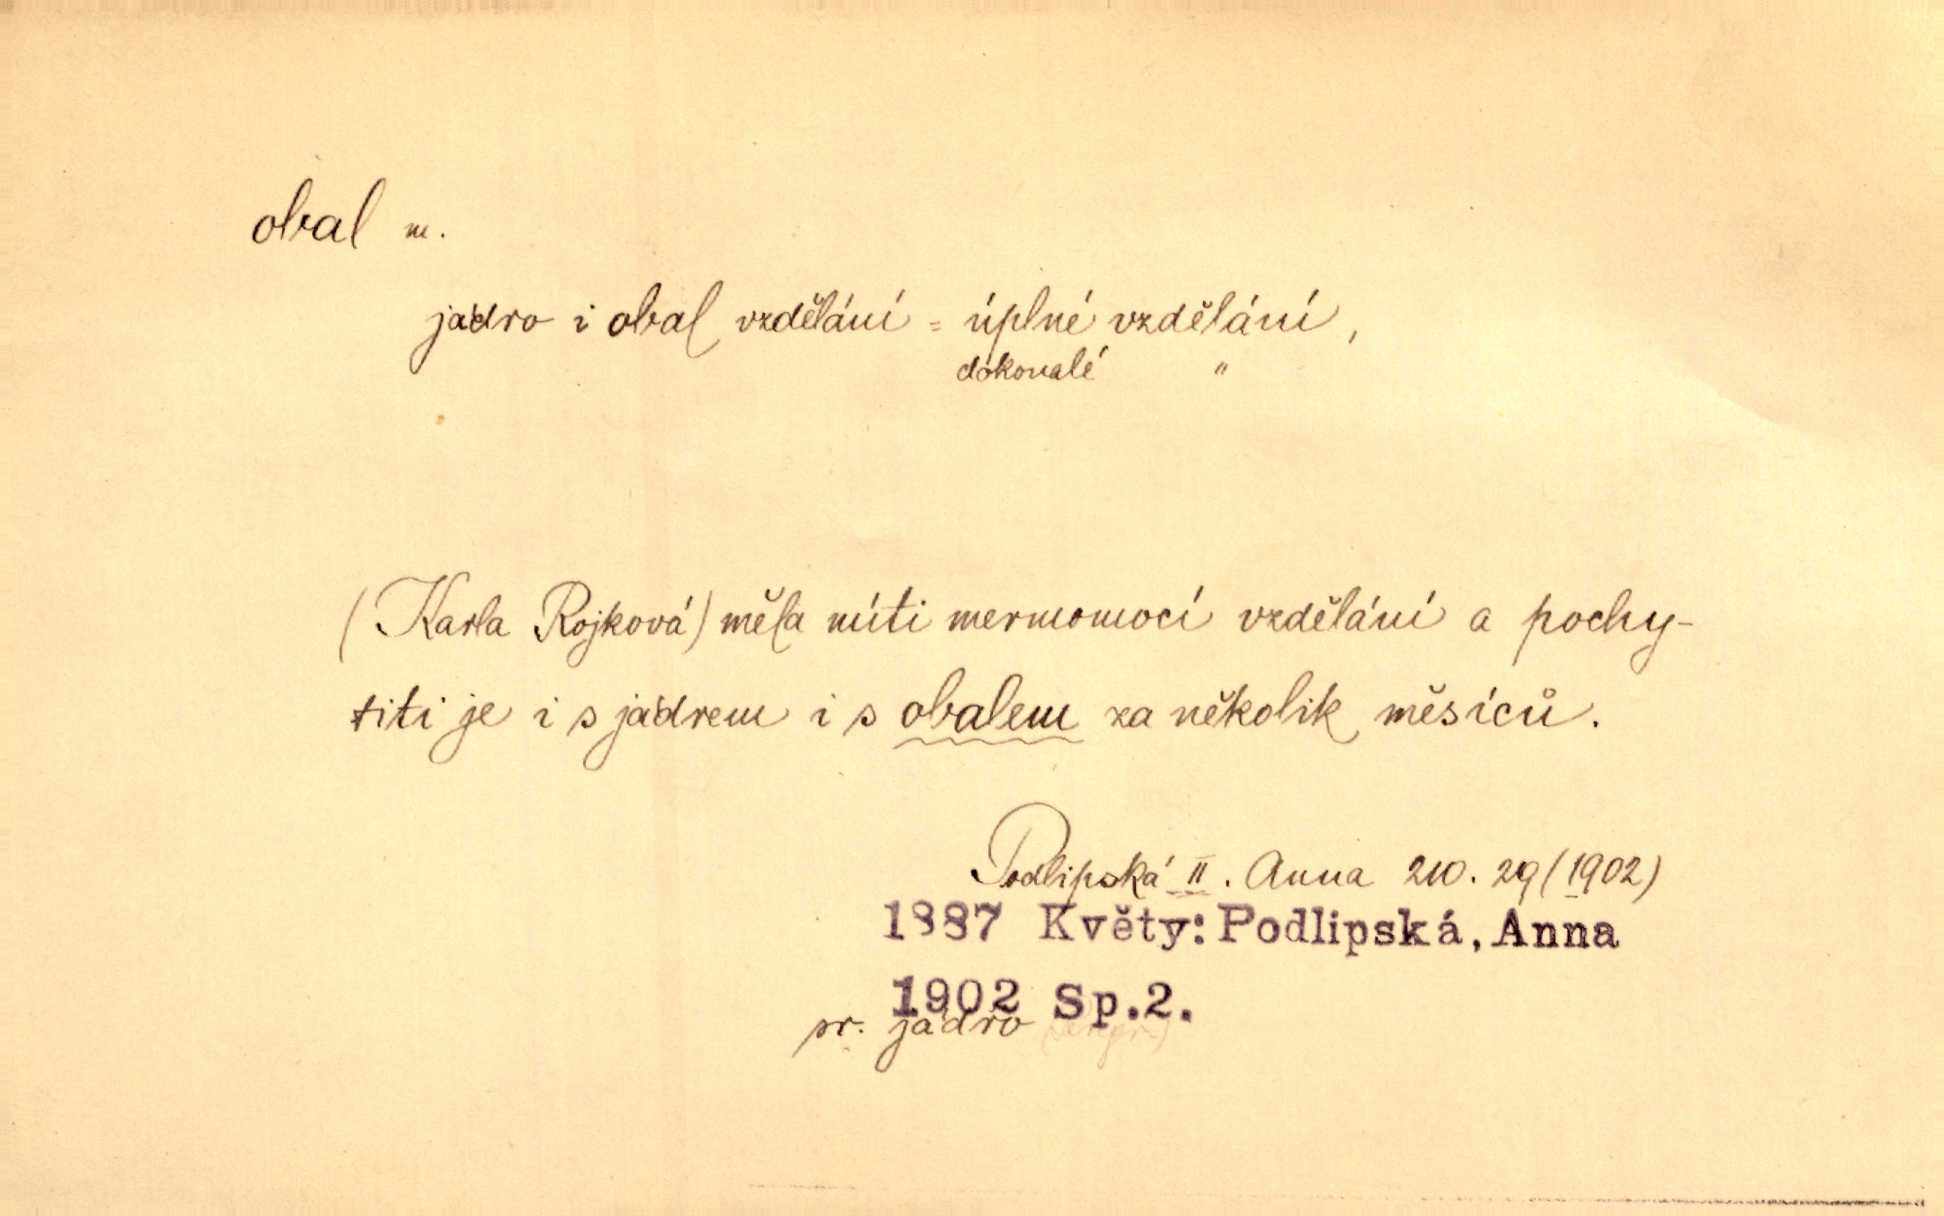 obal m.
jádro i obal vzdělání = úplné vzdělání,
dokonalé "
(Karla Rojková) měla míti mermomocí vzdělání a pochy-
titi je i s jádrem i s obalem za několik měsíců.
Podlipská II. Anna 210. 29 (1902)
1887 Květy: Podlipská, Anna
1902 Sp.2.
sr. jádro